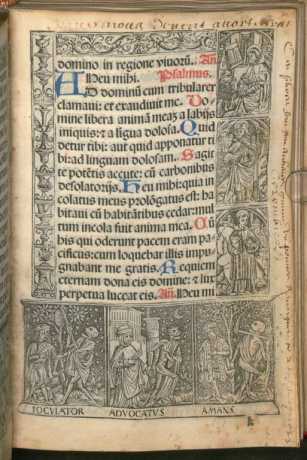 domino in regione viuorū. Añ.
Heu mihi. Psalmus.
AD dominū cum tribularer
clamaui: et exaudiuit me. Do-
mine libera animā meaȝ a labijs
iniquis: et a līgua dolosa. Quid
detur tibi: aut quid apponatur ti
bi: ad linguam dolosam. Sagit
te potētis accute: cū carbonibus
desolatorijs. Heu mihi: quia in
colatus meus prolōgatus est: ha
bitaui cū habitātibus cedar: mul
tum incola fuit anima mea. Cū
his qui oderunt pacem eram pa
cificus: cum loquebar illis impu
gnabant me gratis. Requiem
eternam dona eis domine: et lux
perpetua luceat eis. Añ. Heu mi
IOCVLATOR ADVOCATVS AMANS